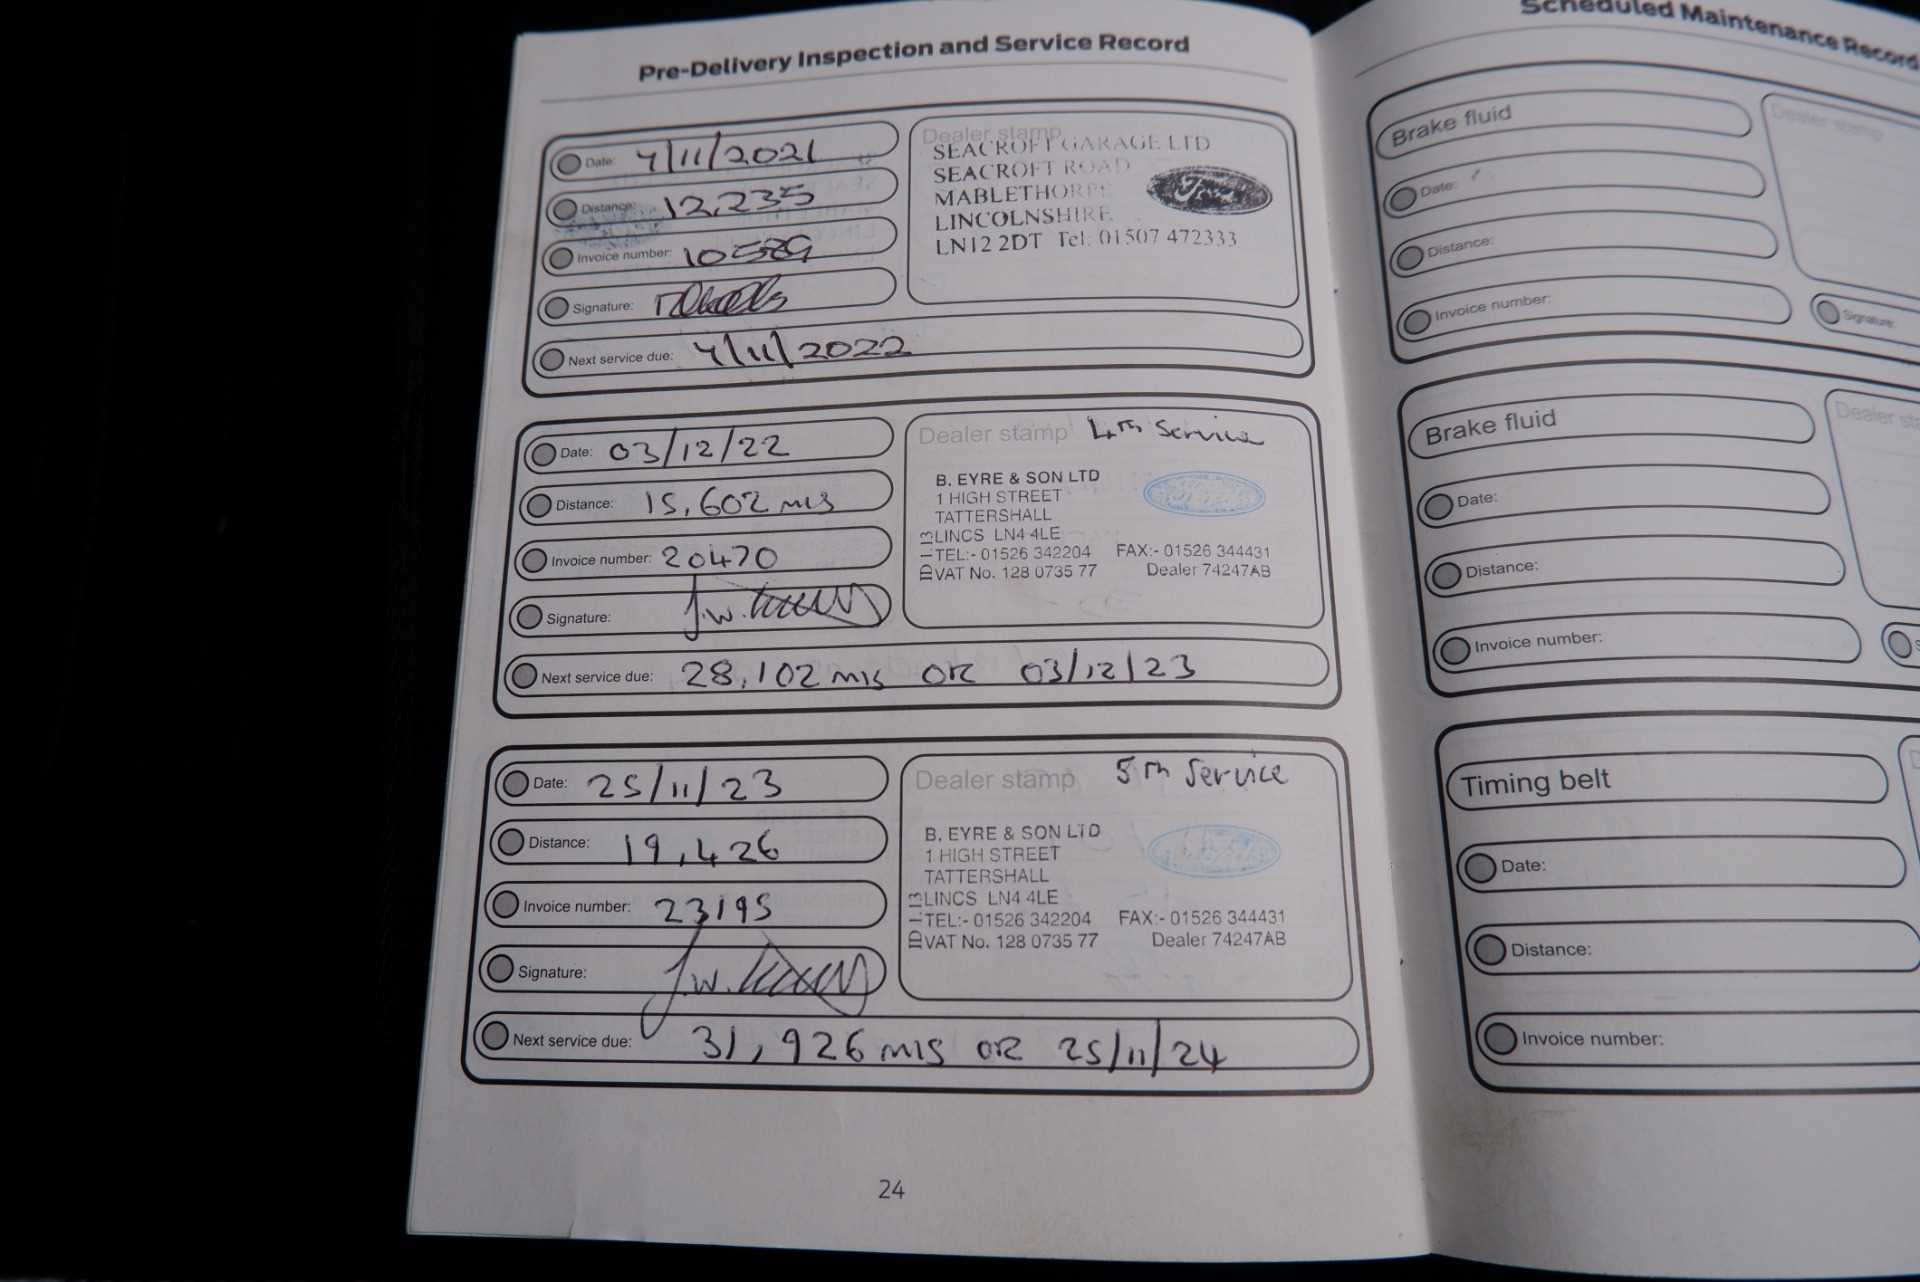 Pre-Delivery Inspection and Service Record
Date: 4/11/2021
Distance: 12,235
Invoice number: 10589
Signature:
Next service due: 4/11/2022
Dealer stamp
SEACROFT GARAGE LTD
SEACROFT ROAD
MABLETHORPE
LINCOLNSHIRE
LN12 2DT Tel: 01507 472333
Ford
Date: 03/12/22
Distance: 15,602 mls
Invoice number: 20470
Signature: J.W.
Next service due: 28,102 mls OR 03/12/23
Dealer stamp 4th Service
B. EYRE & SON LTD
1 HIGH STREET
TATTERSHALL
LINCS LN4 4LE
TEL:- 01526 342204 FAX:- 01526 344431
VAT No. 128 0735 77 Dealer 74247AB
Date: 25/11/23
Distance: 19,426
Invoice number: 23195
Signature: J.W.
Next service due: 31,926 mls OR 25/11/24
Dealer stamp 5th Service
B. EYRE & SON LTD
1 HIGH STREET
TATTERSHALL
LINCS LN4 4LE
TEL:- 01526 342204 FAX:- 01526 344431
VAT No. 128 0735 77 Dealer 74247AB
24
Scheduled Maintenance Record
Brake fluid
Dealer stamp
Date:
Distance:
Invoice number:
Signature:
Brake fluid
Dealer
Date:
Distance:
Invoice number:
Timing belt
Date:
Distance:
Invoice number: